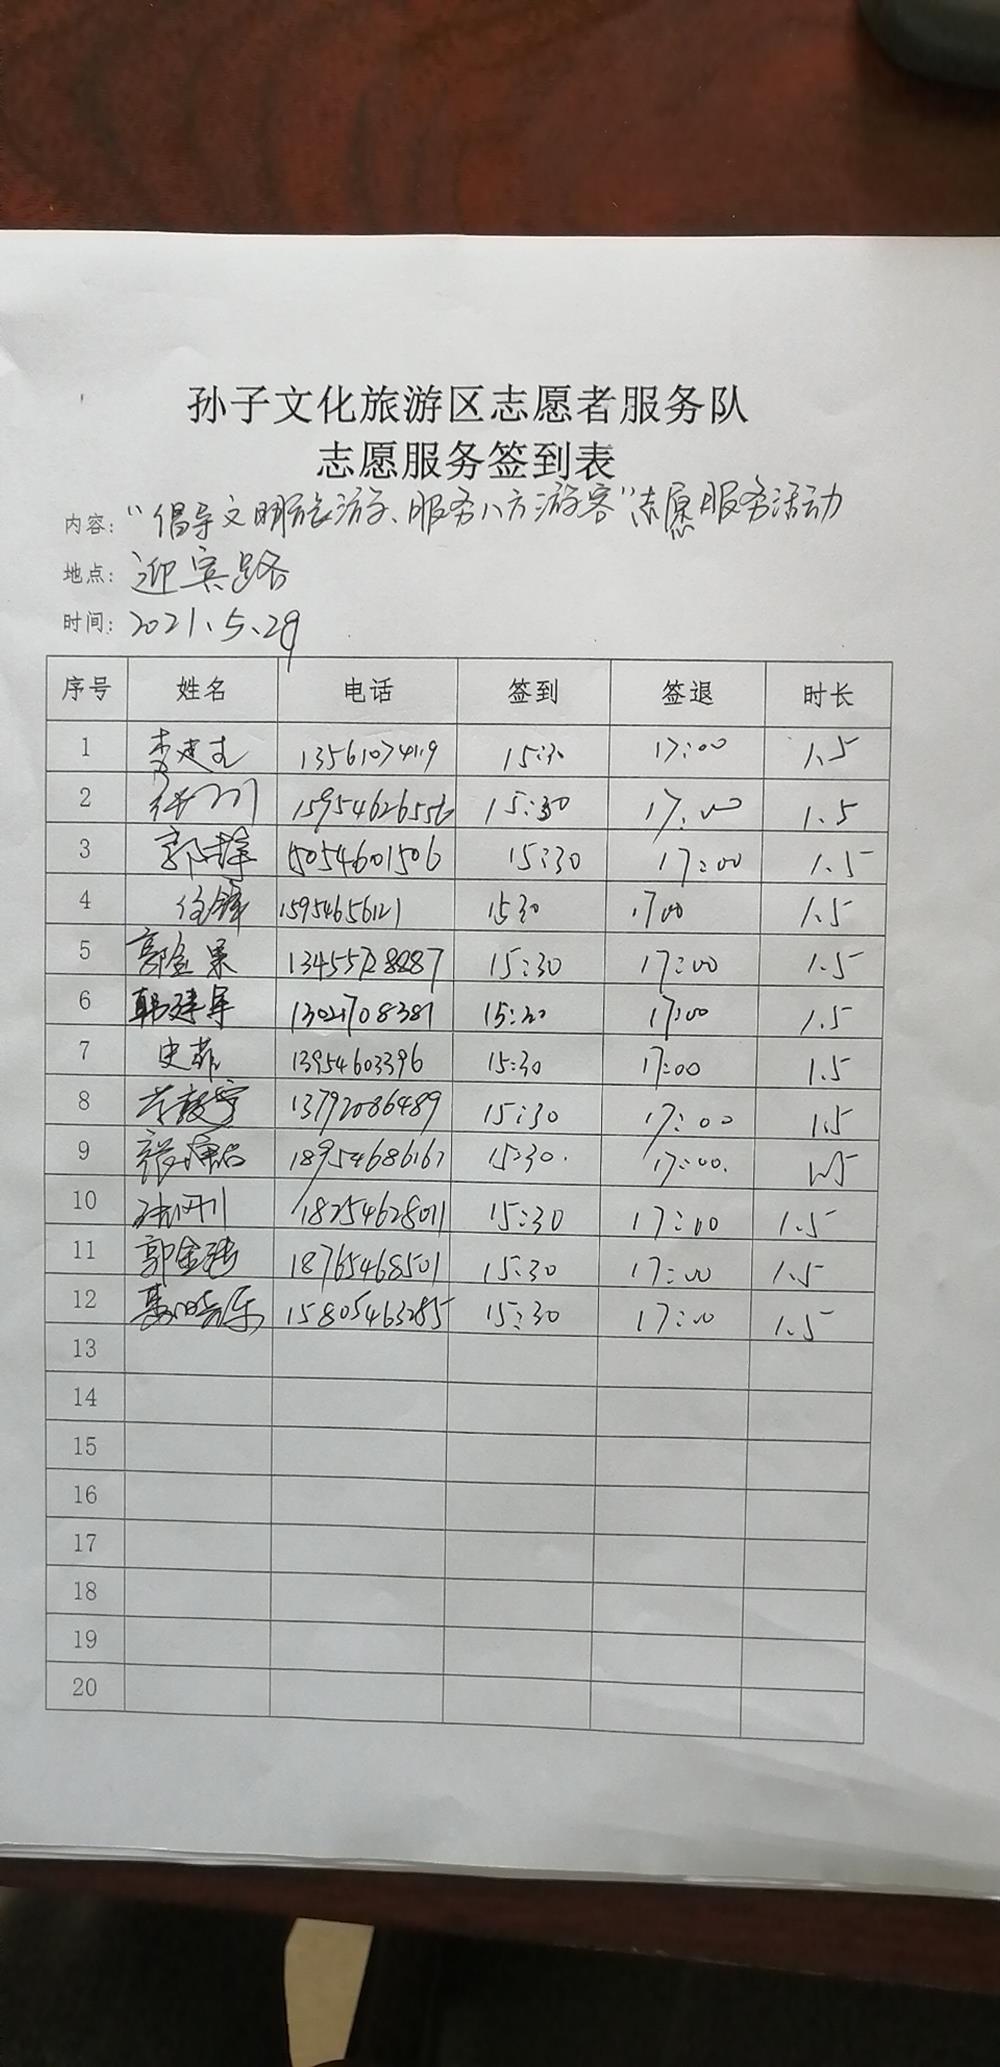 孙子文化旅游区志愿者服务队
志愿服务签到表
内容：“倡导文明旅游、服务八方游客”志愿服务活动
地点：迎宾路
时间：2021.5.29
序号 姓名 电话 签到 签退 时长
1 李建 13561074119 15:30 17:00 1.5
2 15954626556 15:30 17:00 1.5
3 郭 15054601506 15:30 17:00 1.5
4 任锋 15954656121 1530 1700 1.5
5 郭金果 13455728287 15:30 17:00 1.5
6 韩建军 13021708381 15:30 17:00 1.5
7 史菲 13954603396 15:30 17:00 1.5
8 13792086489 15:30 17:00 1.5
9 18954686167 15:30. 17:00. 1.5
10 18254628011 15:30 17:00 1.5
11 郭金 18765468501 15:30 17:00 1.5
12 15805463285 15:30 17:00 1.5
13
14
15
16
17
18
19
20